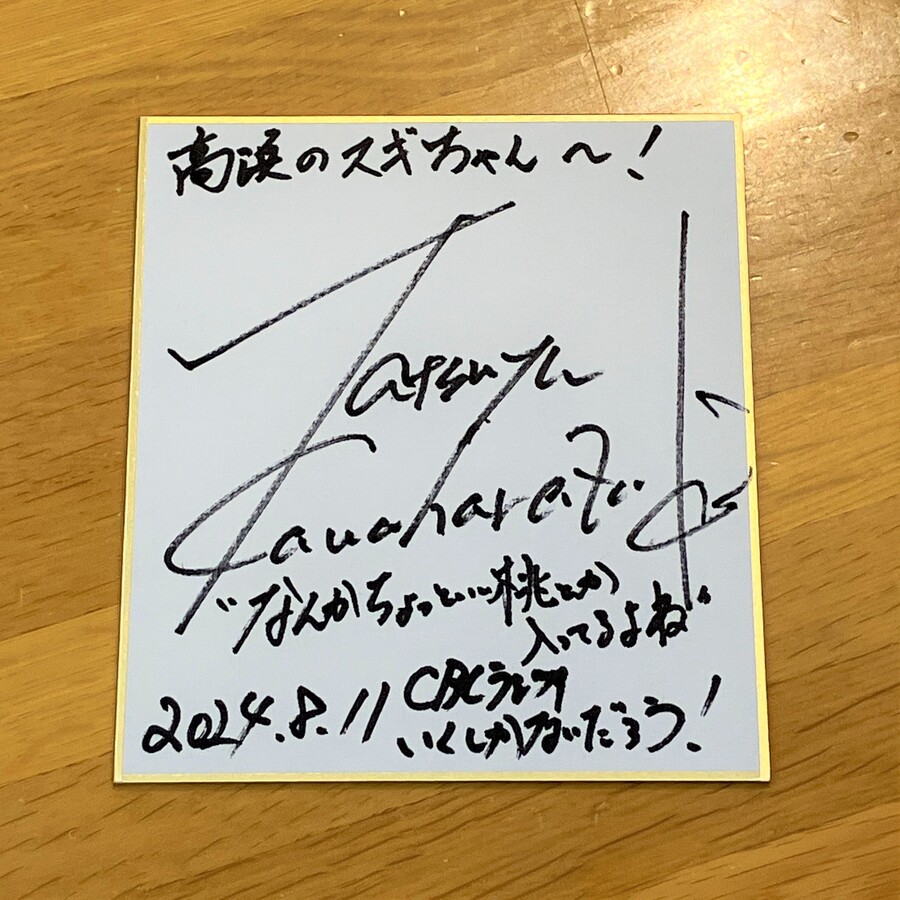 高浜のスギちゃん〜!
Tatsuya
Kawahara
"なんかちょっといい桃とか
入ってるよね"
2024.8.11
CBCラジオ
いくしかないだろう!